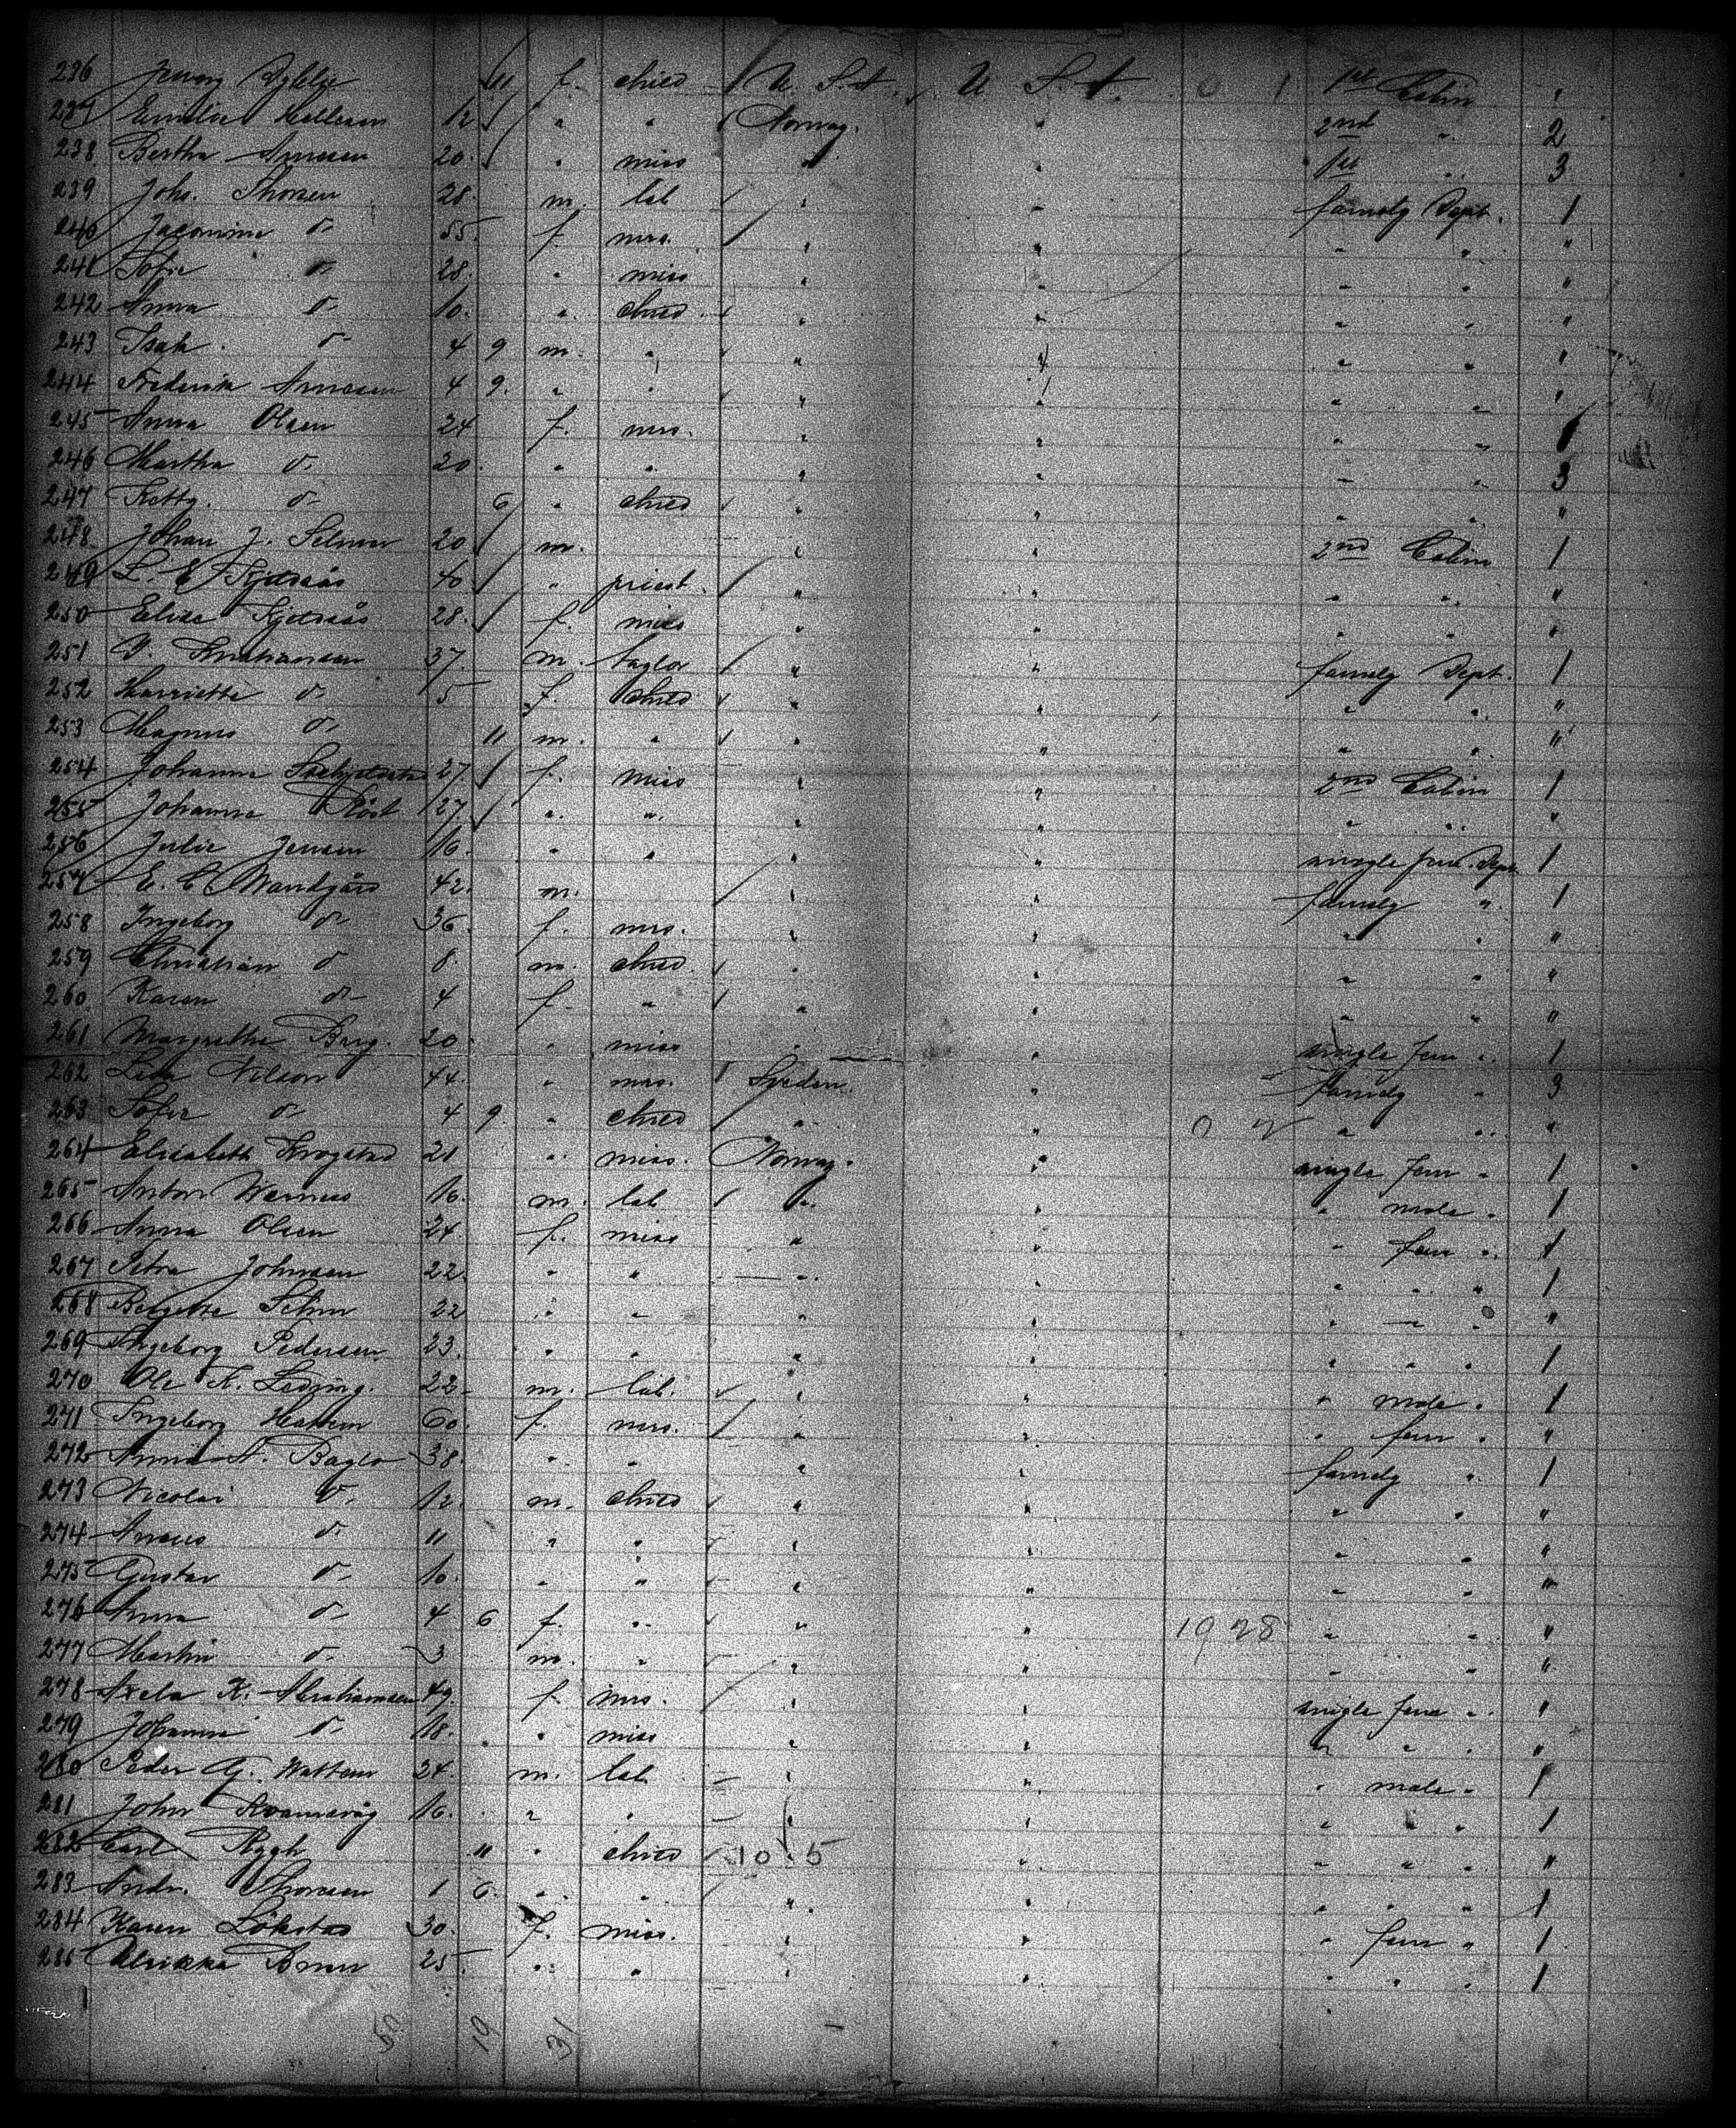 236 Jenny 11 f. child U. S. A. U. S. A. 0 1 1st Cabin "
237 Emilie Hallesen 12 " " Norway. " 2nd " 2
238 Bertha Arnesen 20. " miss " " 1st " 3
239 Johs. Thorsen 28. m. lab " " family Dept. 1
240 Jacomine do 55. f. mrs. " " " " "
241 Sofie do 28. " miss " " " "
242 Anna do 10. " child " " " " "
243 Isak do 4 9 m. " " " " " "
244 Frederik Arnesen 4 9. " " " " " " "
245 Anna Olsen 24 f. mrs. " " " " 1
246 Martha do 20. " " " " " " 3
247 Ketty. do 6 " child " " " " "
248 Johan J. Selmer 20 m. " " 2nd Cabin 1
249 L. E. Kjeldaas 40 " priest. " " " " "
250 Elise Kjeldaas 28. f. miss " " " " "
251 Kristiansen 37. m. taylor " " family Dept. 1
252 Harriette do 5 f. child " " " " "
253 Magnus do 11 m. " " " " " "
254 Johanna 27. f. miss " " 2nd Cabin 1
255 Johanna 27. " " " " " " "
256 Julie Jensen 16. " " " " single fem. Dept. 1
257 E. C. Wandgård 42. m. " " family " 1
258 Ingeborg do 36. f. mrs. " " " " "
259 Christian do 8. m. child. " " " " "
260 Karen do 4 f. " " " " " "
261 Margrethe Berg. 20. " miss " " single fem " 1
262 Nilson 44. " mrs. Sveden. " family " 3
263 Sofie do 4 9. " child " " 0 2 " " "
264 Elisabeth Krogstad 21 " miss. Norway. " single fem " 1
265 Anton Warness 16. m. lab " " " male " 1
266 Anna Olsen 24. f. miss " " " fem " 1
267 Petra Johnsen 22. " " " " " " " 1
268 Bergette 22 " " " " " " " "
269 Ingeborg Pedersen. 23. " " " " " " " 1
270 Ole K. 22. m. lab. " " " male " 1
271 Ingeborg 60. f. mrs. " " " fem " "
272 Anna A. Baglo 38. " " " " family " 1
273 Nicolai do 12. m. child " " " " "
274 do 11 " " " " " " "
275 Gustav do 10. " " " " " " "
276 Anna do 4 6 f. " " " 19 28 " " "
277 Martin do 3 m. " " " " " "
278 Axela K. Abrahamsen 49. f. mrs. " " single fem " "
279 Johanna do 18. " miss " " " " " "
280 Peder G. Wattem 24. m. lab " " " male " 1
281 John 16. " " " " " " " 1
282 Carl Rygh 11 " child 10 5 " " " " "
283 Andr. Thorsen 1 6. " " " " " " " 1
284 Karen Lökstad 30. f. miss. " " " fem " 1
285 Ulrikka Brun 25. " " " " " " " 1
50 19 31